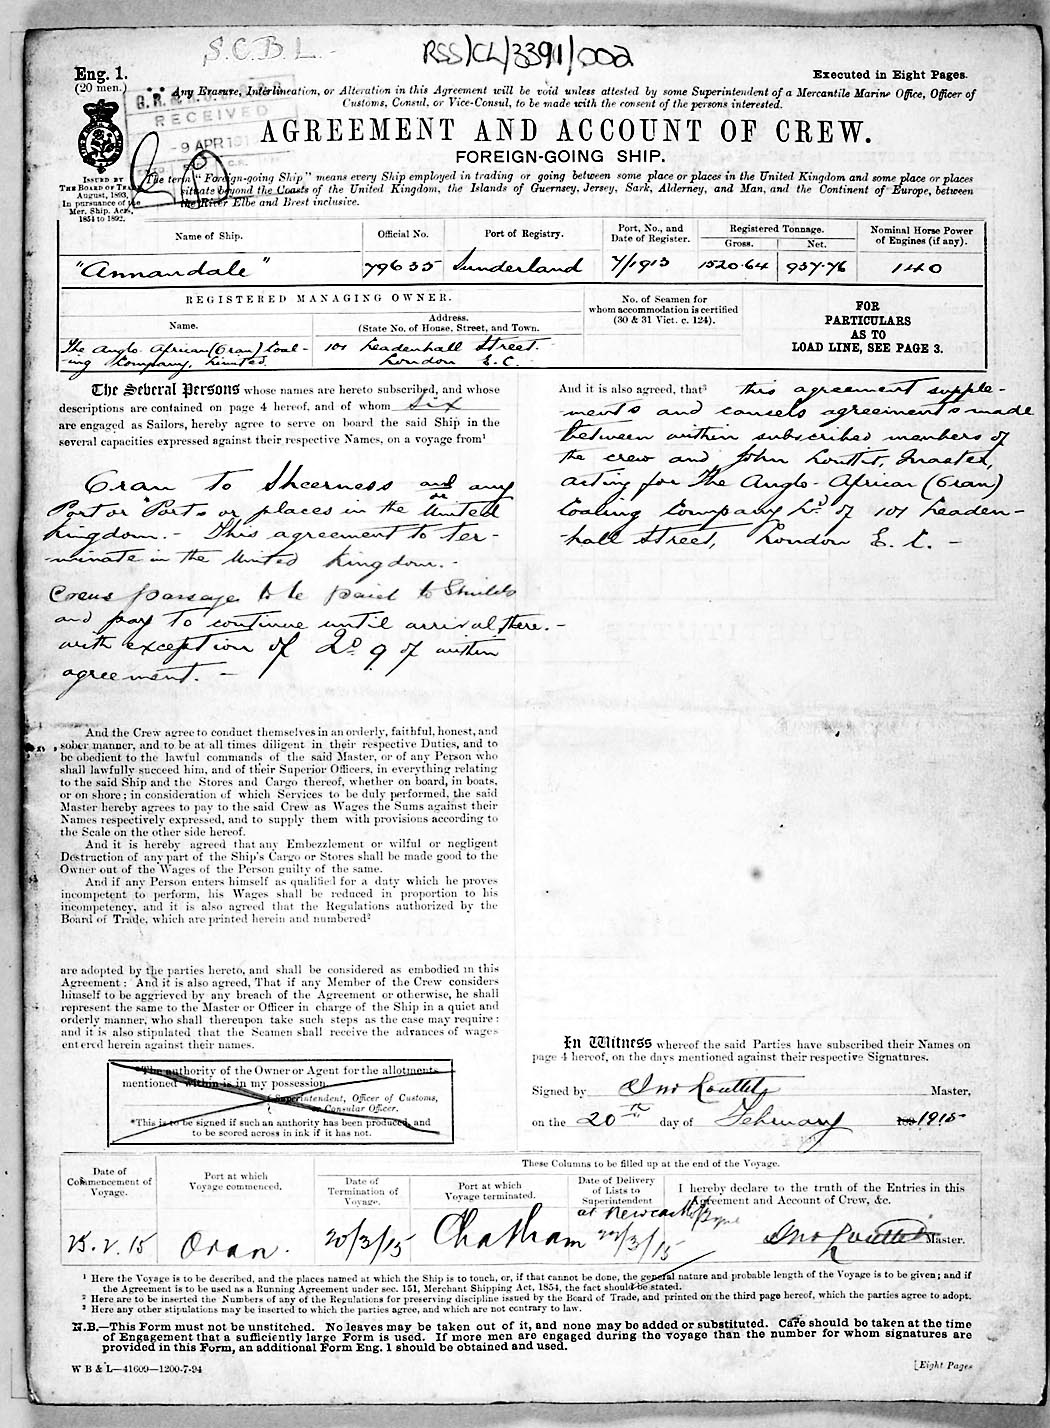 S.C.B.L.
RSS/CL/3391/002
Eng. 1.
(20 men.)
Executed in Eight Pages.
Any Erasure, Interlineation, or Alteration in this Agreement will be void unless attested by some Superintendent of a Mercantile Marine Office, Officer of
Customs, Consul, or Vice-Consul, to be made with the consent of the persons interested.
RECEIVED
9 APR 191
AGREEMENT AND ACCOUNT OF CREW.
FOREIGN-GOING SHIP.
ISSUED BY
THE BOARD OF TRADE
August, 1893,
In pursuance of the
Mer. Ship. Acts,
1854 to 1892.
The term "Foreign-going Ship" means every Ship employed in trading or going between some place or places in the United Kingdom and some place or places
situate beyond the Coasts of the United Kingdom, the Islands of Guernsey, Jersey, Sark, Alderney, and Man, and the Continent of Europe, between
the River Elbe and Brest inclusive.
Name of Ship.
Official No.
Port of Registry.
Port, No., and
Date of Register.
Registered Tonnage.
Gross.
Net.
Nominal Horse Power
of Engines (if any).
"Annandale"
79635
Sunderland
7/1913
1520.64
937.76
140
REGISTERED MANAGING OWNER.
Name.
Address.
(State No. of House, Street, and Town.
No. of Seamen for
whom accommodation is certified
(30 & 31 Vict. c. 124).
FOR
PARTICULARS
AS TO
LOAD LINE, SEE PAGE 3.
The Anglo African (Oran) Coal-
ing Company, Limited.
101 Leadenhall Street.
London E.C.
The Several Persons whose names are hereto subscribed, and whose
descriptions are contained on page 4 hereof, and of whom Six
are engaged as Sailors, hereby agree to serve on board the said Ship in the
several capacities expressed against their respective Names, on a voyage from¹
Oran to Sheerness and/or any
Port or Ports or places in the United
Kingdom. - This agreement to ter-
-minate in the United Kingdom. -
Crews passage to be paid to Shields
and pay to continue until arrival there. -
with exception of No. 9 of within
agreement. -
And it is also agreed, that³ this agreement supple-
-ments and cancels agreements made
between within subscribed members of
the crew and John Louttit, Master,
acting for The Anglo-African (Oran)
Coaling Company Ld. of 101 Leaden-
-hall Street, London E.C. -
And the Crew agree to conduct themselves in an orderly, faithful, honest, and
sober manner, and to be at all times diligent in their respective Duties, and to
be obedient to the lawful commands of the said Master, or of any Person who
shall lawfully succeed him, and of their Superior Officers, in everything relating
to the said Ship and the Stores and Cargo thereof, whether on board, in boats,
or on shore; in consideration of which Services to be duly performed, the said
Master hereby agrees to pay to the said Crew as Wages the Sums against their
Names respectively expressed, and to supply them with provisions according to
the Scale on the other side hereof.
And it is hereby agreed that any Embezzlement or wilful or negligent
Destruction of any part of the Ship's Cargo or Stores shall be made good to the
Owner out of the Wages of the Person guilty of the same.
And if any Person enters himself as qualified for a duty which he proves
incompetent to perform, his Wages shall be reduced in proportion to his
incompetency, and it is also agreed that the Regulations authorized by the
Board of Trade, which are printed herein and numbered²
are adopted by the parties hereto, and shall be considered as embodied in this
Agreement: And it is also agreed, That if any Member of the Crew considers
himself to be aggrieved by any breach of the Agreement or otherwise, he shall
represent the same to the Master or Officer in charge of the Ship in a quiet and
orderly manner, who shall thereupon take such steps as the case may require:
and it is also stipulated that the Seamen shall receive the advances of wages
entered herein against their names.
*The authority of the Owner or Agent for the allotments
mentioned within is in my possession.
Superintendent, Officer of Customs,
or Consular Officer.
*This is to be signed if such an authority has been produced, and
to be scored across in ink if it has not.
In Witness whereof the said Parties have subscribed their Names on
page 4 hereof, on the days mentioned against their respective Signatures.
Signed by Jno Louttit Master,
on the 20th day of February 189 1915
These Columns to be filled up at the end of the Voyage.
Date of
Commencement of
Voyage.
Port at which
Voyage commenced.
Date of
Termination of
Voyage.
Port at which
Voyage terminated.
Date of Delivery
of Lists to
Superintendent
at Newcastle/Tyne
I hereby declare to the truth of the Entries in this
Agreement and Account of Crew, &c.
25.2.15
Oran.
20/3/15
Chatham
22/3/15
Jno Louttit Master.
¹ Here the Voyage is to be described, and the places named at which the Ship is to touch, or, if that cannot be done, the general nature and probable length of the Voyage is to be given; and if
the Agreement is to be used as a Running Agreement under sec. 151, Merchant Shipping Act, 1854, the fact should be stated.
² Here are to be inserted the Numbers of any of the Regulations for preserving discipline issued by the Board of Trade, and printed on the third page hereof, which the parties agree to adopt.
³ Here any other stipulations may be inserted to which the parties agree, and which are not contrary to law.
N.B.—This Form must not be unstitched. No leaves may be taken out of it, and none may be added or substituted. Care should be taken at the time
of Engagement that a sufficiently large Form is used. If more men are engaged during the voyage than the number for whom signatures are
provided in this Form, an additional Form Eng. 1 should be obtained and used.
W B & L—41609—1200-7-94
[Eight Pages